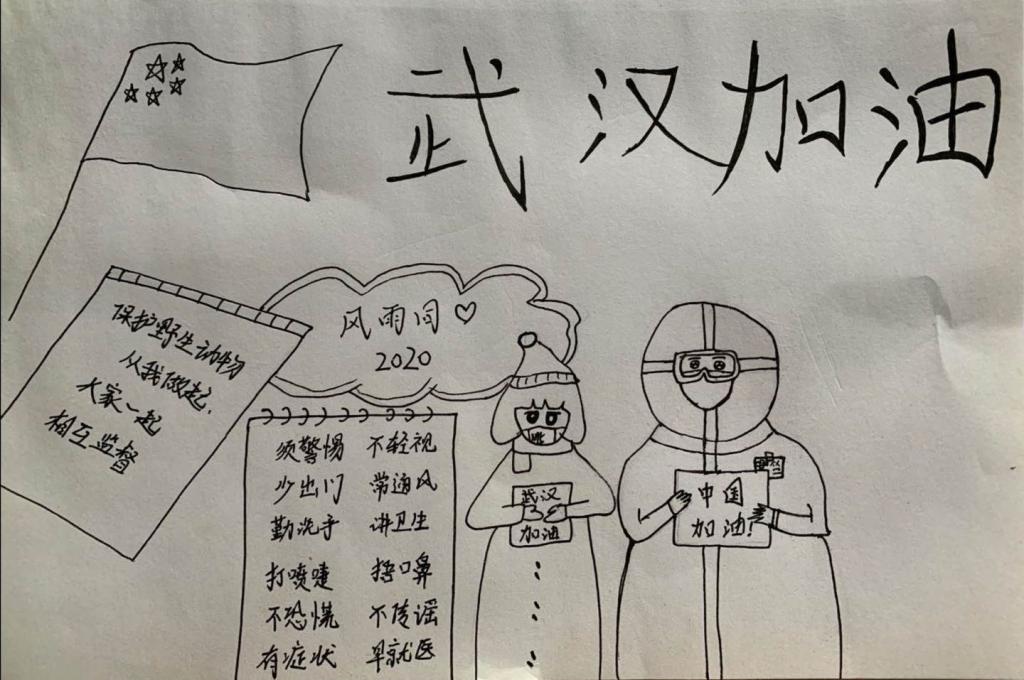 武汉加油
风雨同♡
2020
保护野生动物
从我做起.
大家一起
相互监督
须警惕 不轻视
少出门 常通风
勤洗手 讲卫生
打喷嚏 捂口鼻
不恐慌 不传谣
有症状 早就医
武汉
加油
中国
加油!